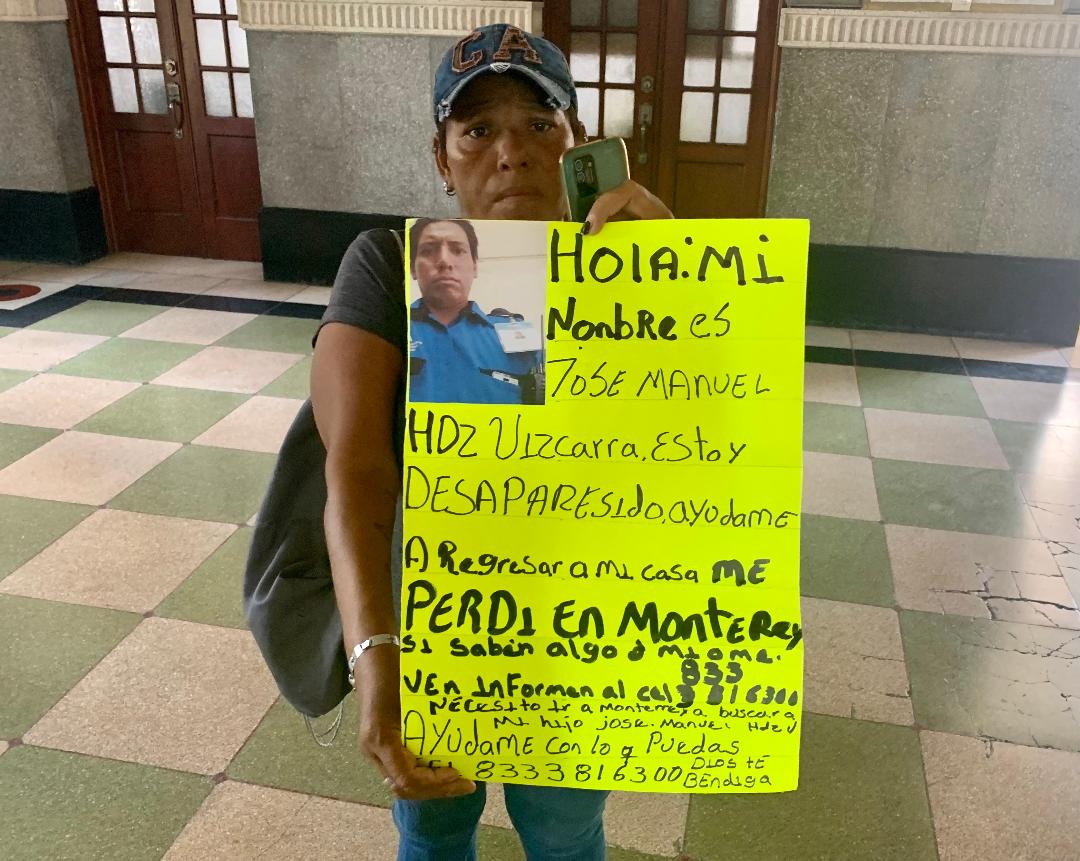 CA
HOLA: Mi
NombRe es
JOSE MANUEL
HDZ VIZcarra, EStoy
DESAPARESIdo, ayUdaME
A Regresar a mi casa ME
PERDI En MontERey
Si Saben algo d mi o me.
833
VEn InFormen al cel 3 816300
NECESito Ir a Monterrey a buscar a
Mi hijo jose. Manuel Hdz V
AYUdaME Con lo q PUEdas
TEL 8333816300 DIOS tE
BEndiga